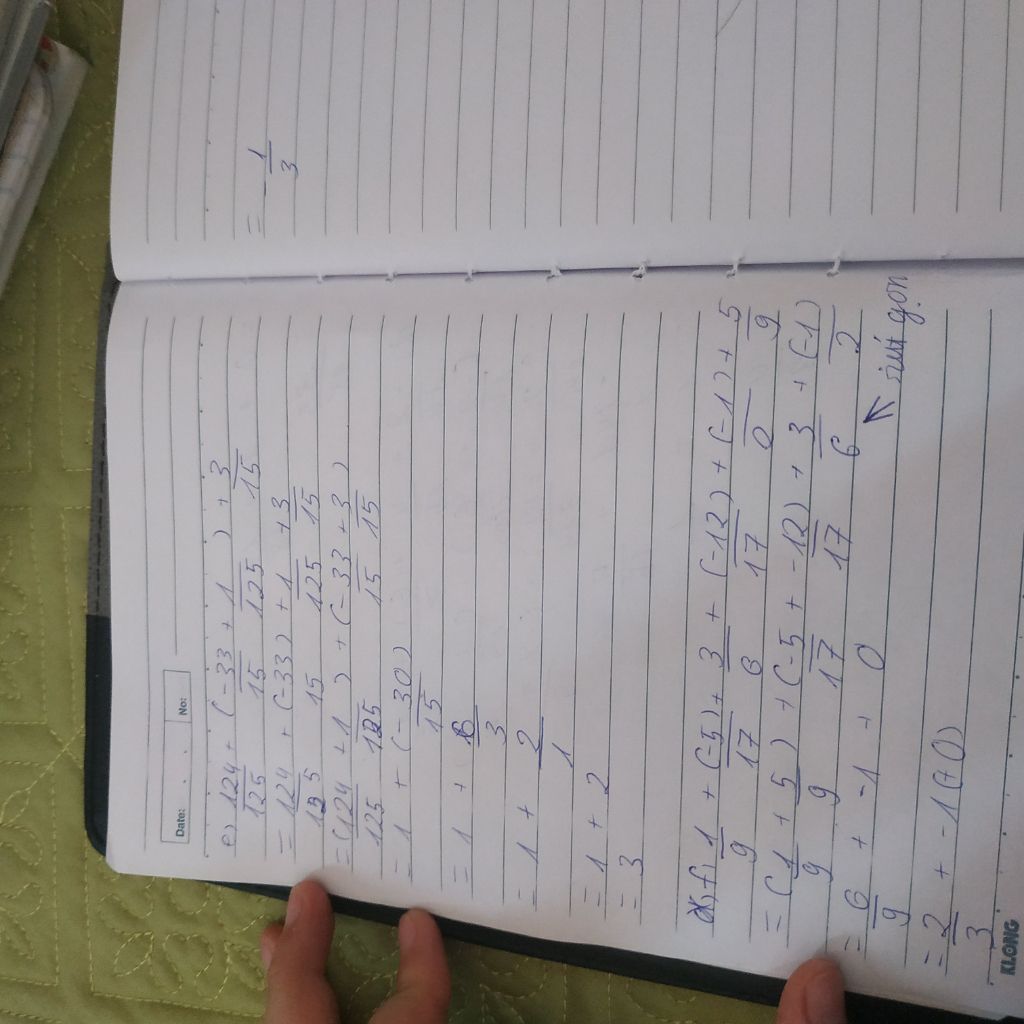 Date: No:
e) 124/125 + (-33/15 + 1/125) + 3/15
= 124/125 + (-33)/15 + 1/125 + 3/15
= (124/125 + 1/125) + (-33/15 + 3/15)
= 1 + (-30)/15
= 1 + 6/3
= 1 + 2/1
= 1 + 2
= 3
f) 1/9 + (-5)/17 + 3/6 + (-12)/17 + (-1)/0 + 5/9
= (1/9 + 5/9) + (-5/17 + -12/17) + 3/6 + (-1)/2
= 6/9 + -1 + 0
rút gọn
= 2/3 + -1 (+0)
= -1/3
KLONG